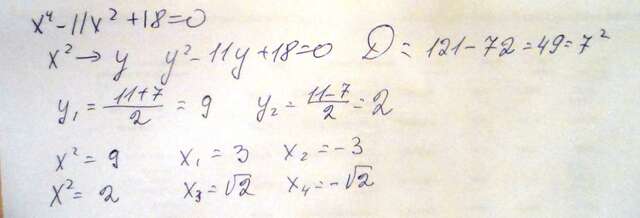 x⁴-11x²+18=0
x²→y y²-11y+18=0 D=121-72=49=7²
y₁=11+7/2=9 y₂=11-7/2=2
x²=9 x₁=3 x₂=-3
x²=2 x₃=√2 x₄=-√2